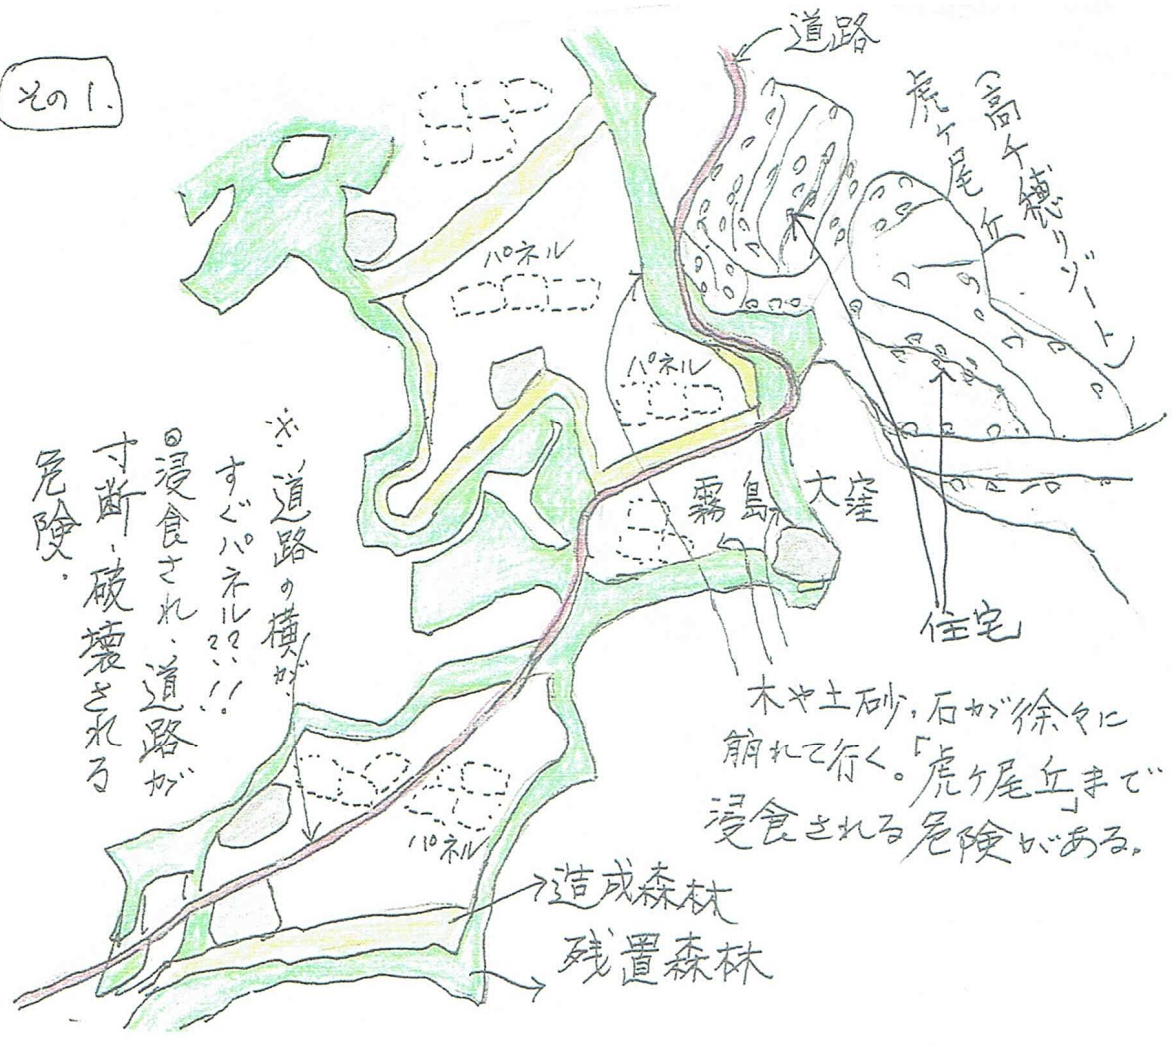 その1.
道路
(高千穂リゾート)
虎ヶ尾丘
パネル
パネル
霧島 大窪
住宅
※道路の横が、
すぐパネル??!!
◎浸食され、道路が
寸断・破壊される
危険.
木や土砂,石が徐々に
崩れて行く。「虎ヶ尾丘」まで
浸食される危険がある。
パネル
造成森林
残置森林